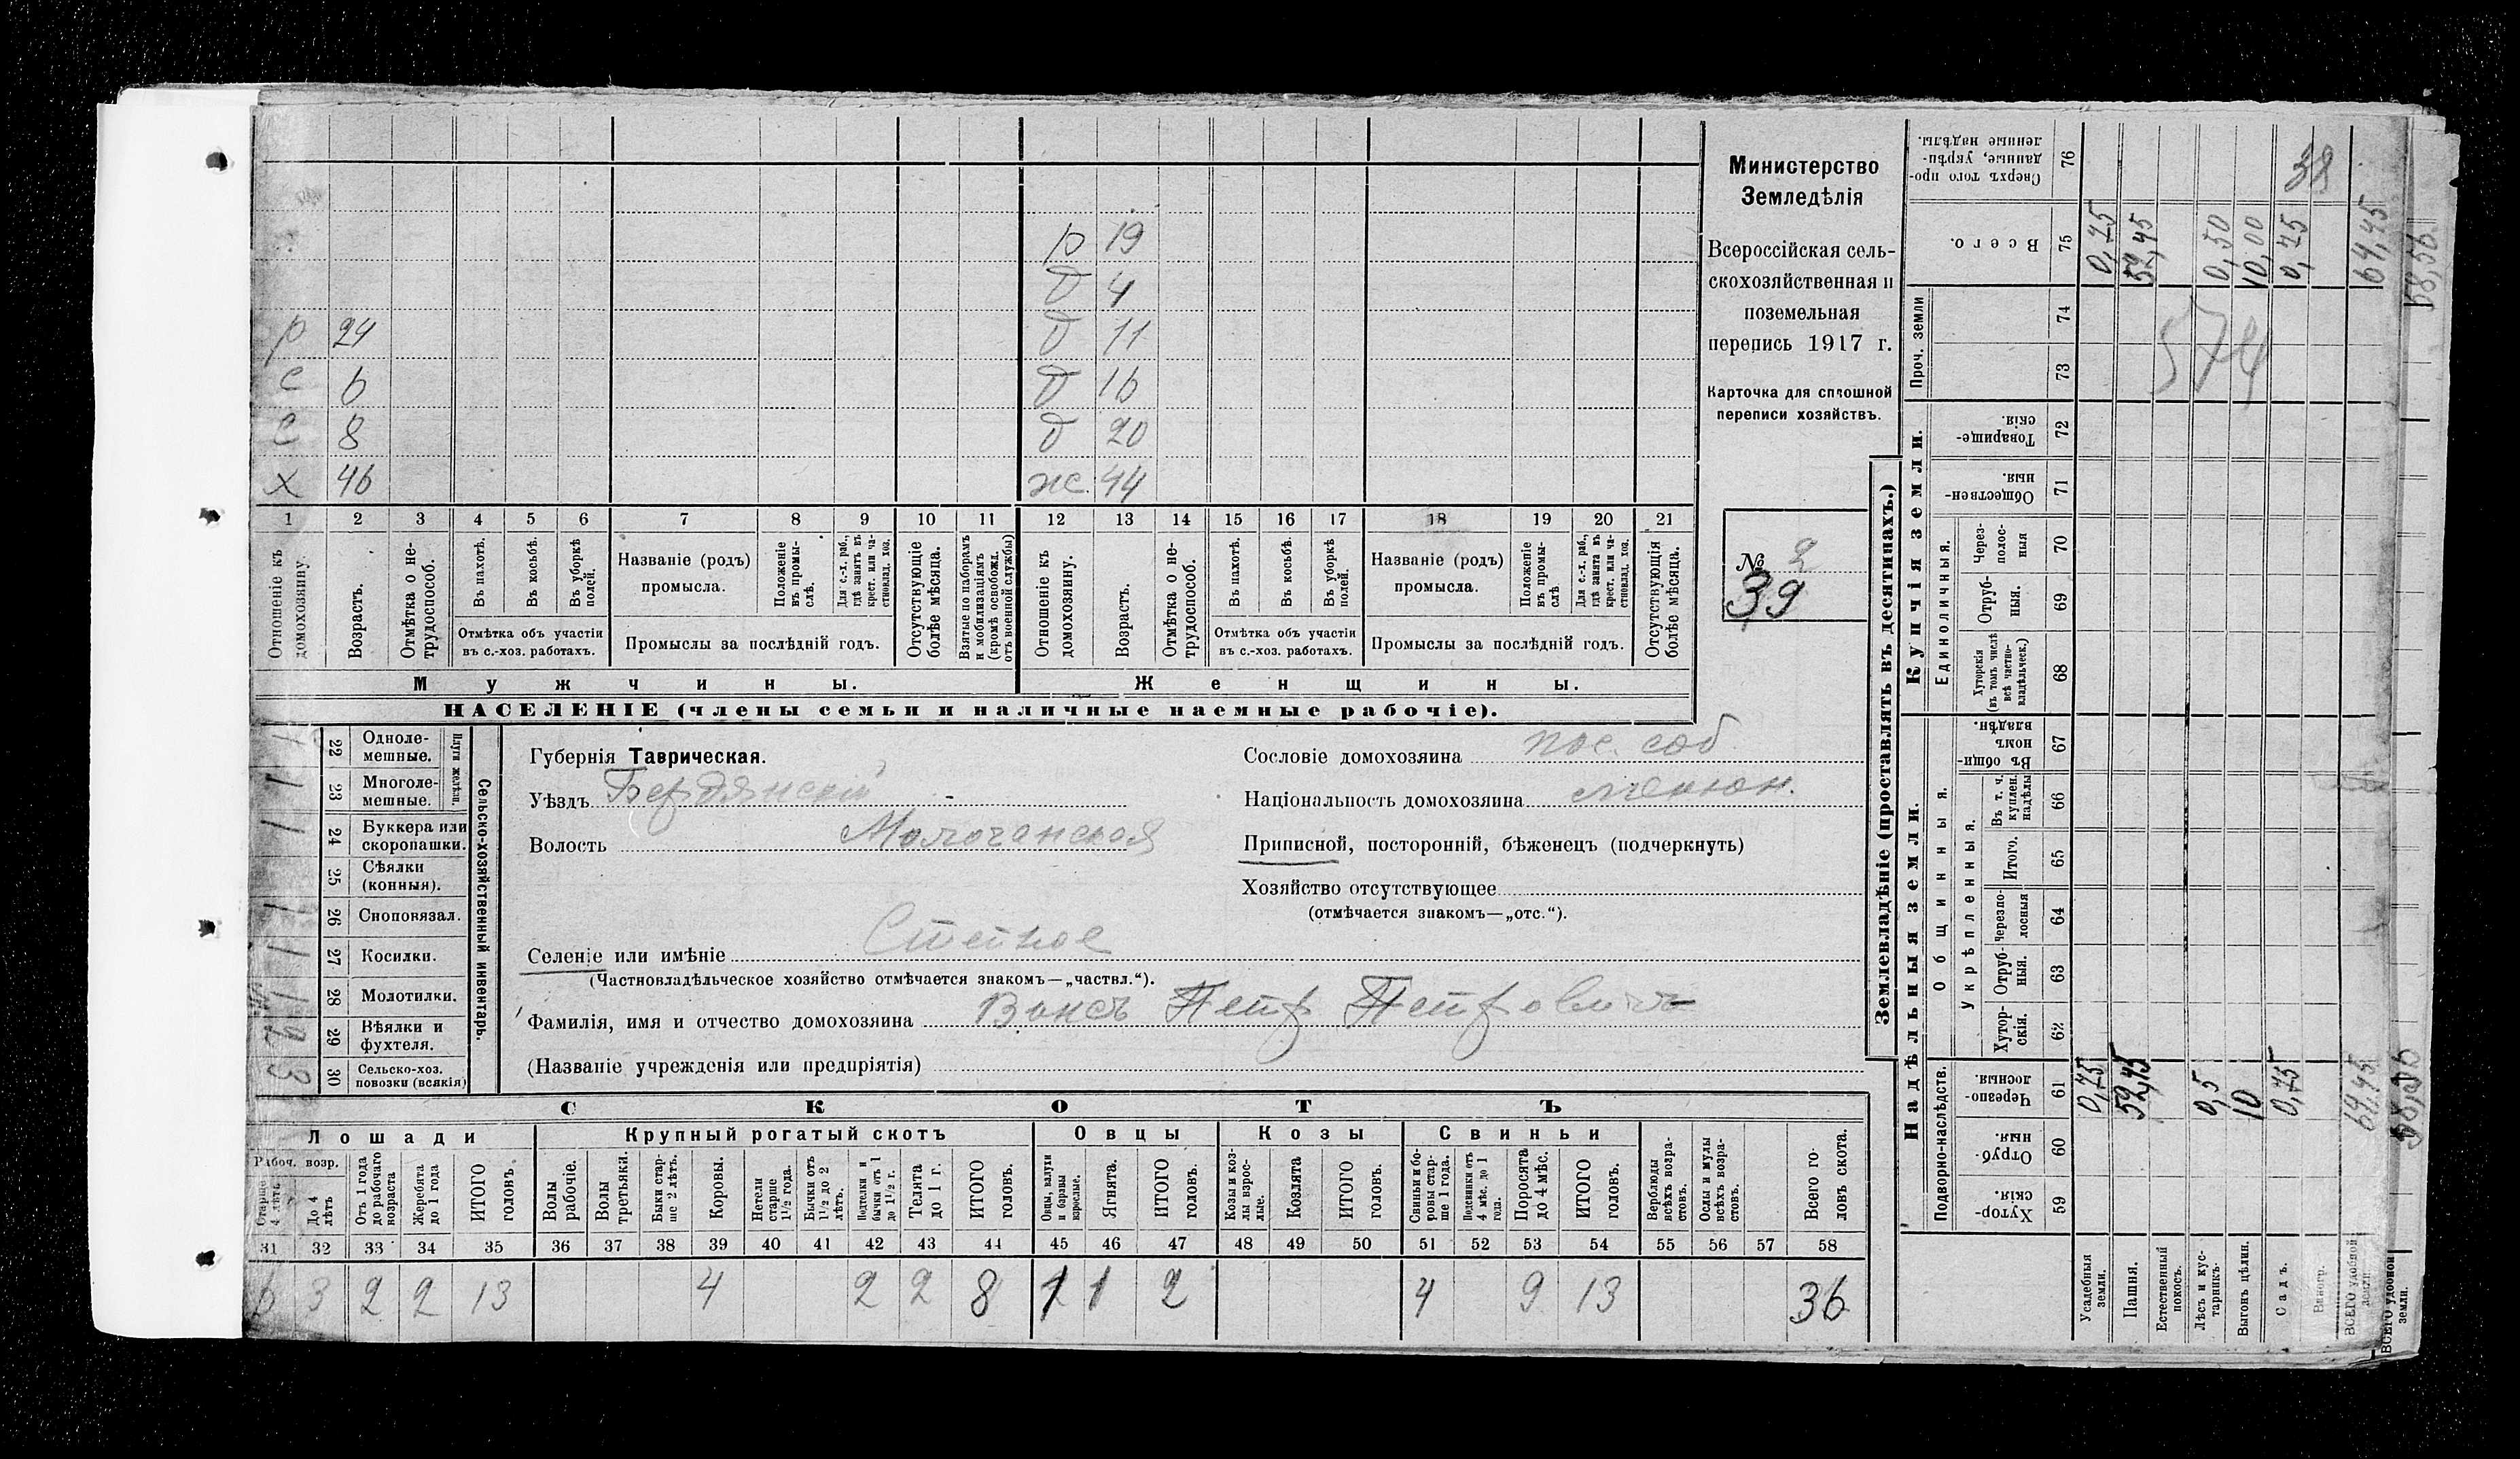 р 19
д 4
р 24 д 11
с 6 д 16
с 8 д 20
х 46 ж. 44
1 2 3 4 5 6 7 8 9 10 11 12 13 14 15 16 17 18 19 20 21
Отношеніе къ домохозяину.
Возрастъ.
Отмѣтка о не-
трудоспособ.
Въ пахотѣ.
Въ косьбѣ.
Въ уборкѣ
полей.
Отмѣтка объ участіи
въ с.-хоз. работахъ.
Названіе (родъ)
промысла.
Положеніе
въ промы-
слѣ.
Для с.-х. раб.,
гдѣ занятъ въ
крест. или ча-
стновлад. хоз.
Промыслы за послѣдній годъ.
Отсутствующіе
болѣе мѣсяца.
Взятые по наборамъ
и мобилизаціямъ
(кромѣ освобожд.
отъ военной службы)
Отношеніе къ
домохозяину.
Возрастъ.
Отмѣтка о не-
трудоспособ.
Въ пахотѣ.
Въ косьбѣ.
Въ уборкѣ
полей.
Отмѣтка объ участіи
въ с.-хоз. работахъ.
Названіе (родъ)
промысла.
Положеніе
въ промы-
слѣ
Для с.-х. раб.,
гдѣ занята въ
крест. или ча-
стновлад. хоз.
Промыслы за послѣдній годъ.
Отсутствующія
болѣе мѣсяца.
Мужчины.
Женщины.
НАСЕЛЕНІЕ (члены семьи и наличные наемные рабочіе).
Министерство
Земледѣлія
Всероссійская сель-
скохозяйственная и
поземельная
перепись 1917 г.
Карточка для сплошной
переписи хозяйствъ.
№ 2
39
Сельско-хозяйственный инвентарь.
Плуги желѣзн.
22 Одноле-
мешные.
1
23 Многоле-
мешные.
1
24 Буккера или
скоропашки.
1
25 Сѣялки
(конныя).
26 Сноповязал.
1
27 Косилки.
1
28 Молотилки.
29 Вѣялки и
фухтеля.
2
30 Сельско-хоз.
повозки (всякія)
3
Губернія Таврическая.
Уѣздъ Бердянскій
Волость Молочанская
Селеніе или имѣніе Степное
(Частновладѣльческое хозяйство отмѣчается знакомъ—„частвл.“).
Фамилія, имя и отчество домохозяина Винсъ Петр Петровичъ
(Названіе учрежденія или предпріятія)
Сословіе домохозяина пос. соб
Національность домохозяина менон.
Приписной, посторонній, бѣженецъ (подчеркнуть)
Хозяйство отсутствующее
(отмѣчается знакомъ—„отс.“).
СКОТЪ
Лошади
Крупный рогатый скотъ
Овцы
Козы
Свиньи
Рабоч. возр.
Старше
4 лѣтъ.
До 4
лѣтъ
Отъ 1 года
до рабочаго
возраста
Жеребята
до 1 года
ИТОГО
головъ.
Волы
рабочіе.
Волы
третьяки.
Быки стар-
ше 2 лѣтъ.
Коровы.
Нетели
старше
1½ года.
Бычки отъ
1½ до 2
лѣтъ.
Подтелки и
бычки отъ 1
до 1½ г.
Телята
до 1 г.
ИТОГО
головъ.
Овцы, валухи
и бараны
взрослые.
Ягнята.
ИТОГО
головъ.
Козы и коз-
лы взрос-
лые.
Козлята
ИТОГО
головъ.
Свиньи и бо-
ровы стар-
ше 1 года.
Подсвинки отъ
4 мѣс. до 1
года.
Поросята
до 4 мѣс.
ИТОГО
головъ.
Верблюды
всѣхъ возра-
стовъ.
Ослы и мулы
всѣхъ возра-
стовъ.
Всего го-
ловъ скота.
31 32 33 34 35 36 37 38 39 40 41 42 43 44 45 46 47 48 49 50 51 52 53 54 55 56 57 58
6 3 2 2 13 4 2 2 8 1 1 2 4 9 13 36
Землевладѣніе (проставлять въ десятинахъ.)
Надѣльныя земли.
Купчія земли.
Проч. земли
Подворно-наслѣдств.
Общинныя.
Укрѣпленныя.
Единоличныя.
Хутор-
скія.
59
Отруб-
ныя.
60
Черезпо-
лосныя.
61
Хутор-
скія.
62
Отруб-
ныя.
63
Черезпо-
лосныя
64
Итого.
65
Въ т. ч.
куплен.
надѣлы
66
Въ общи-
номъ
владѣн.
67
Хуторскія
(въ томъ числѣ
всѣ частно-
владѣльческ.)
68
Отруб-
ныя.
69
Через-
полос-
ныя
70
Обществен-
ныя.
71
Товарище-
скія.
72
73
74
Всего.
75
Сверхъ того про-
данные, укрѣп-
ленные надѣлы.
76
Усадебныя
земли.
0,75 0,75
Пашня.
52,45 52,45
Естественный
покосъ.
Лѣсъ и кус-
тарникъ.
0,5 0,50
Выгонъ цѣлин.
10 10,00
Садъ.
0,75 0,75
Виногр.
ВСЕГО удобной
земли.
64,45 64,45
ВСЕГО удобной
земли.
58,56
574
38